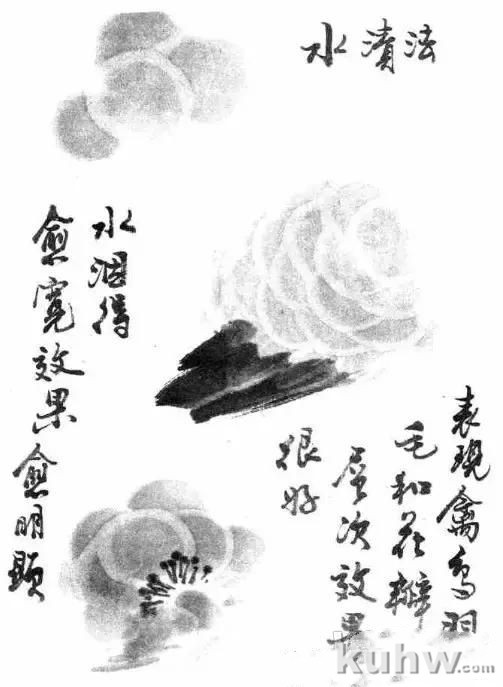 水漬法
水洇得
愈寬效果愈明顯
表現禽鸟羽
毛和花瓣
层次效果
很好
kuhw.com